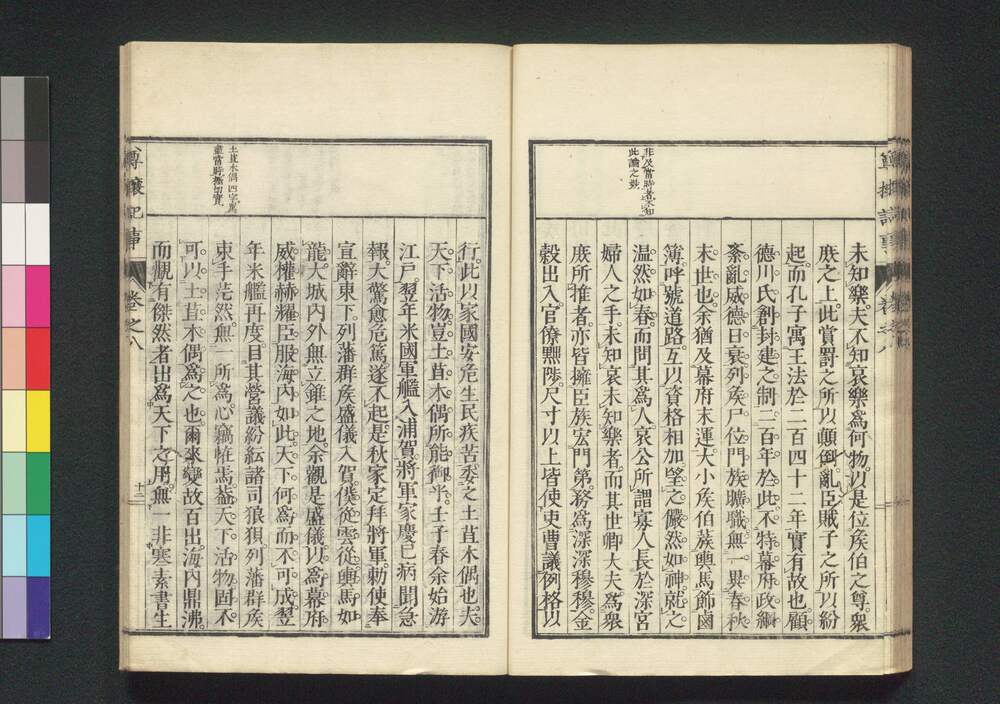 尊攘記事
卷之八
非及當時者不知
此論之妙
未知樂夫不知哀樂爲何物以是位矦伯之尊衆
庶之上此賞罰之所以顛倒亂臣賊子之所以紛
起而孔子寓王法於二百四十二年實有故也顧
德川氏創封建之制二百年於此不特幕府政綱
紊亂威德日衰列矦尸位門族曠職無一異春秋
末世也余猶及幕府末運大小矦伯蔟輿馬飾鹵
簿呼號道路互以資格相加望之儼然如神就之
温然如春而問其爲人哀公所謂寡人長於深宮
婦人之手未知哀未知樂者而其世卿大夫爲衆
庶所推者亦皆擁臣族宏門第務爲深深穆穆金
穀出入官僚黜陟尺寸以上皆使吏曹議例格以
行此以家國安危生民疾苦委之土苴木偶也夫
天下活物豈土苴木偶所能御乎壬子春余始游
江戸翌年米國軍艦入浦賀將軍家慶已病聞急
報大驚愈危篤遂不起是秋家定拜將軍勅使奉
宣辭東下列藩群矦盛儀入賀僕從雲從輿馬如
龍大城内外無立錐之地余觀是盛儀以爲幕府
威權赫耀臣服海内如此天下何爲而不可成翌
年米艦再度目其營議紛紜諸司狼狽列藩群矦
束手茫然無一所爲心竊恠焉葢天下活物固不
可以土苴木偶爲之也爾來變故百出海内鼎沸
而覵有傑然者出爲天下之用無一非寒素書生
土苴木偶四字寫
盡當時極切實
尊攘記事
卷之八
十二